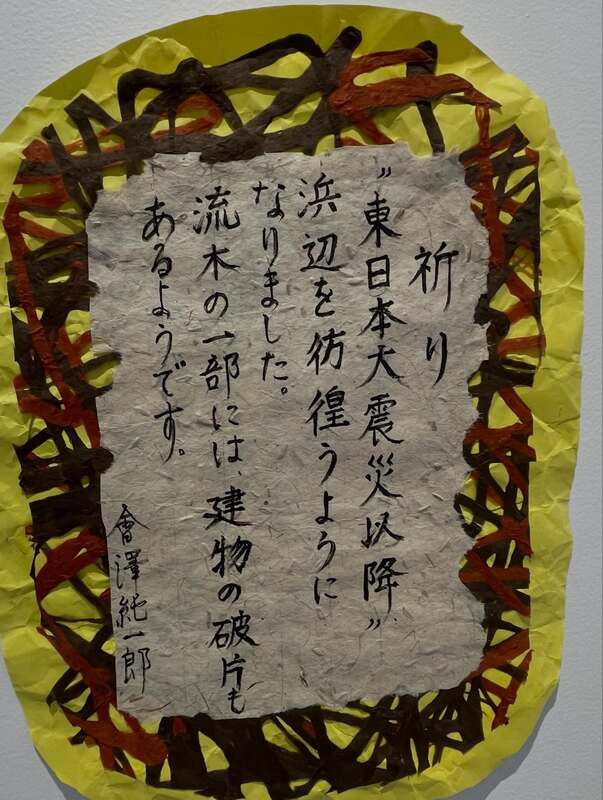 祈り
〝東日本大震災以降〟
浜辺を彷徨うように
なりました。
流木の一部には、建物の破片も
あるようです。
會澤純一郎